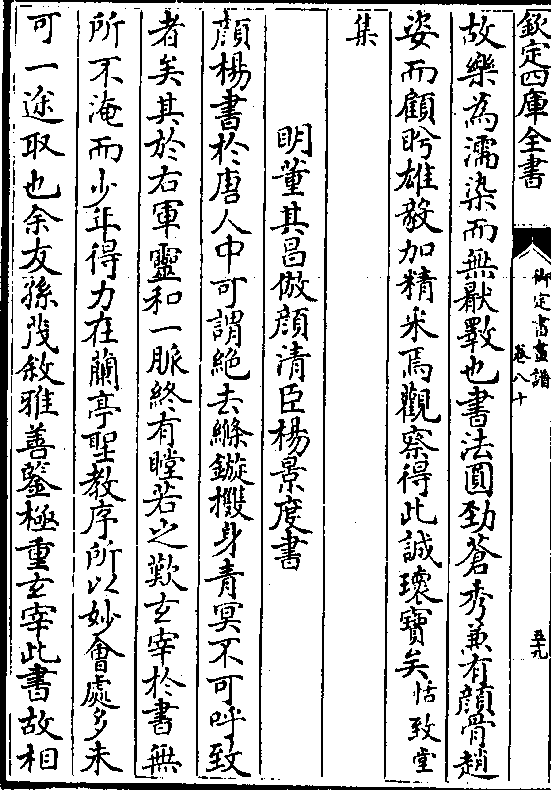 欽定四庫全書
御定書畫譜
卷八十
五十九
故樂為濡染而無厭斁也書法圓勁蒼秀兼有顔骨趙
姿而顧盻雄毅加精采焉觀察得此誠瓌寶矣恬致堂
集
明董其昌倣顔清臣楊景度書
顔楊書於唐人中可謂絶去絛鏇㩳身青冥不可呼致
者矣其於右軍靈和一脈終有瞠若之歎玄宰於書無
所不淹而少年得力在蘭亭聖教序所以妙會處多未
可一途取也余友孫敘雅善鑒極重玄宰此書故相